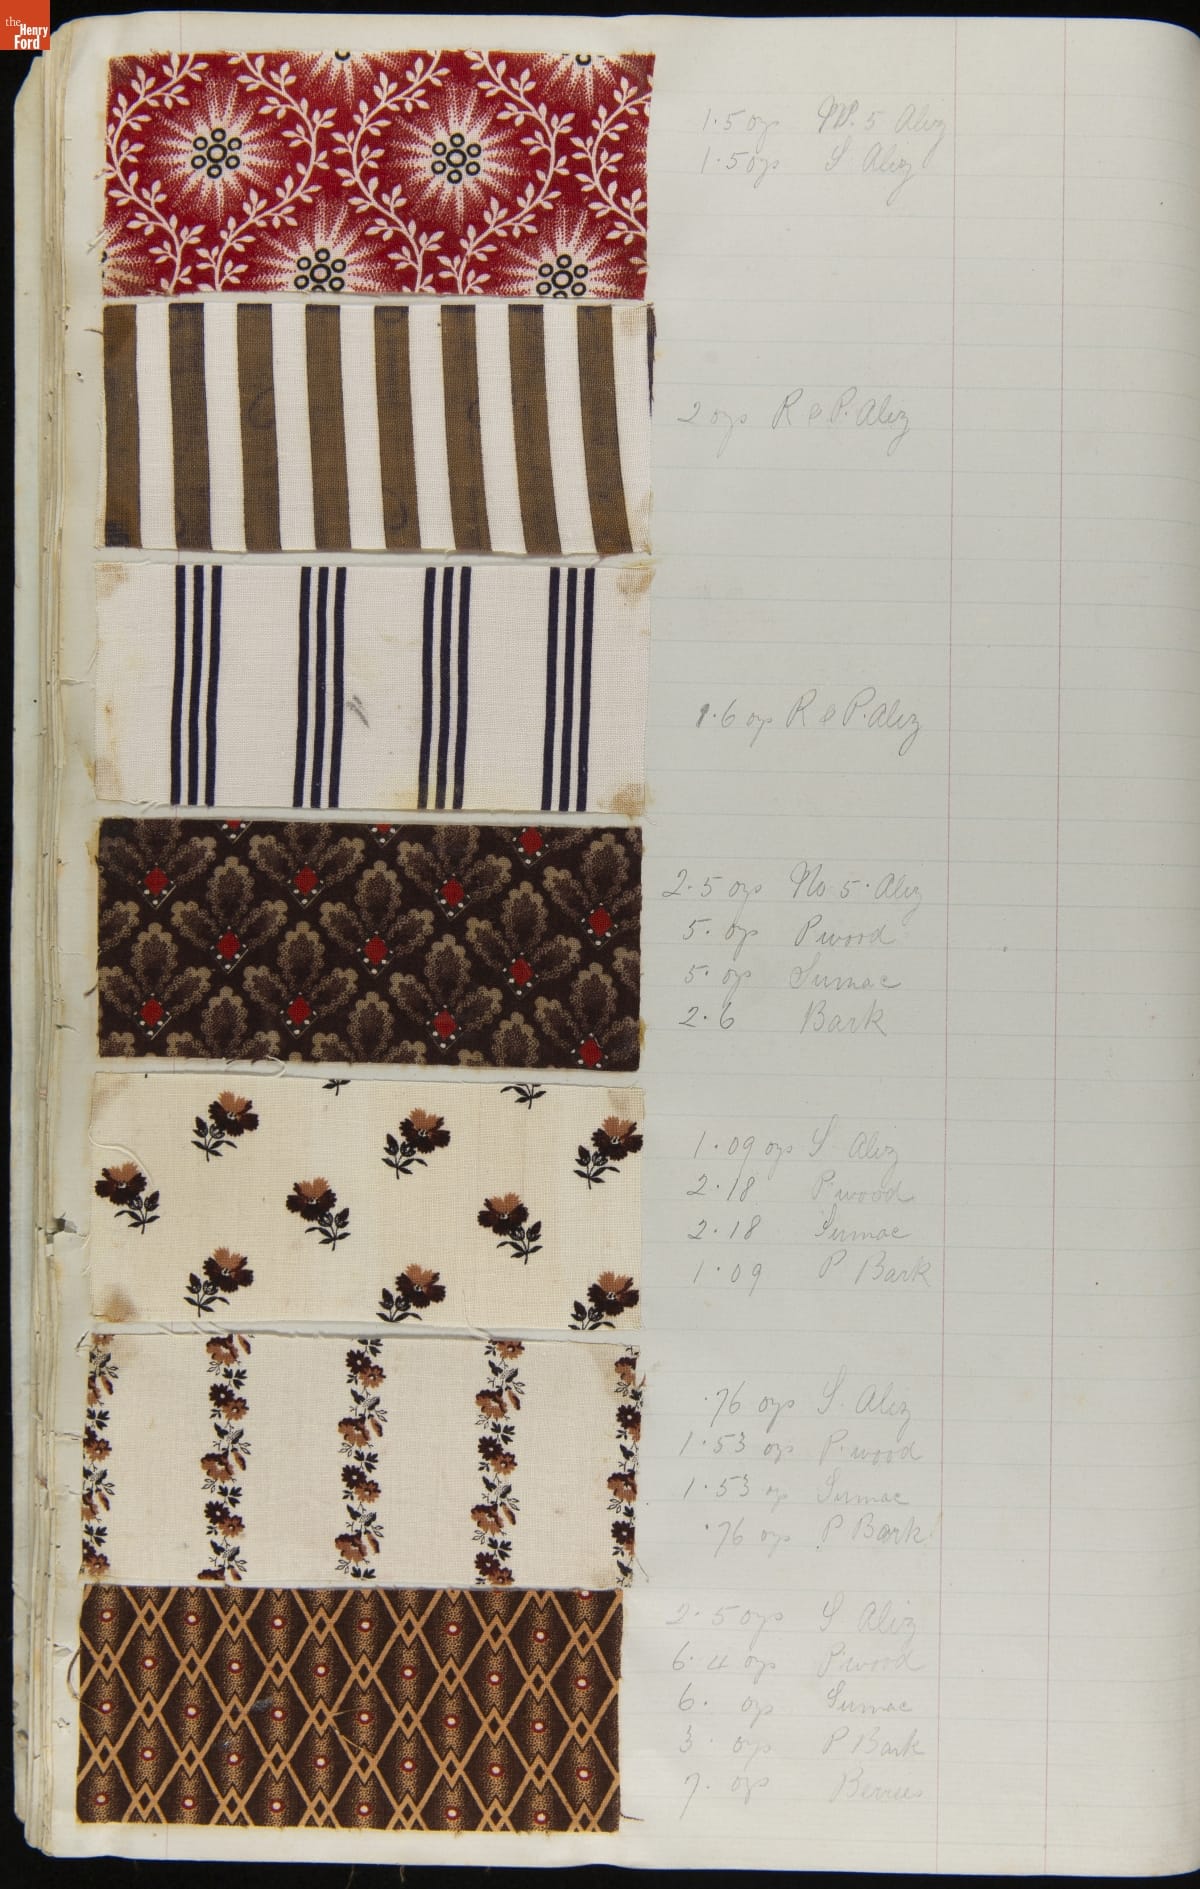 the
Henry
Ford
1.5 ozs No. 5 Aliz
1.5 ozs S Aliz
2 ozs R & P. Aliz
1.6 ozs R & P. Aliz
2.5 ozs No. 5. Aliz
5. ozs Pwood
5. ozs Sumac
2.6 Bark
1.09 ozs S Aliz
2.18 P.wood
2.18 Sumac
1.09 P Bark
.76 ozs S. Aliz
1.53 ozs P.wood
1.53 ozs Sumac
.76 ozs P Bark
2.5 ozs S Aliz
6.4 ozs P.wood
6. ozs Sumac
3. ozs P Bark
7. ozs Berries